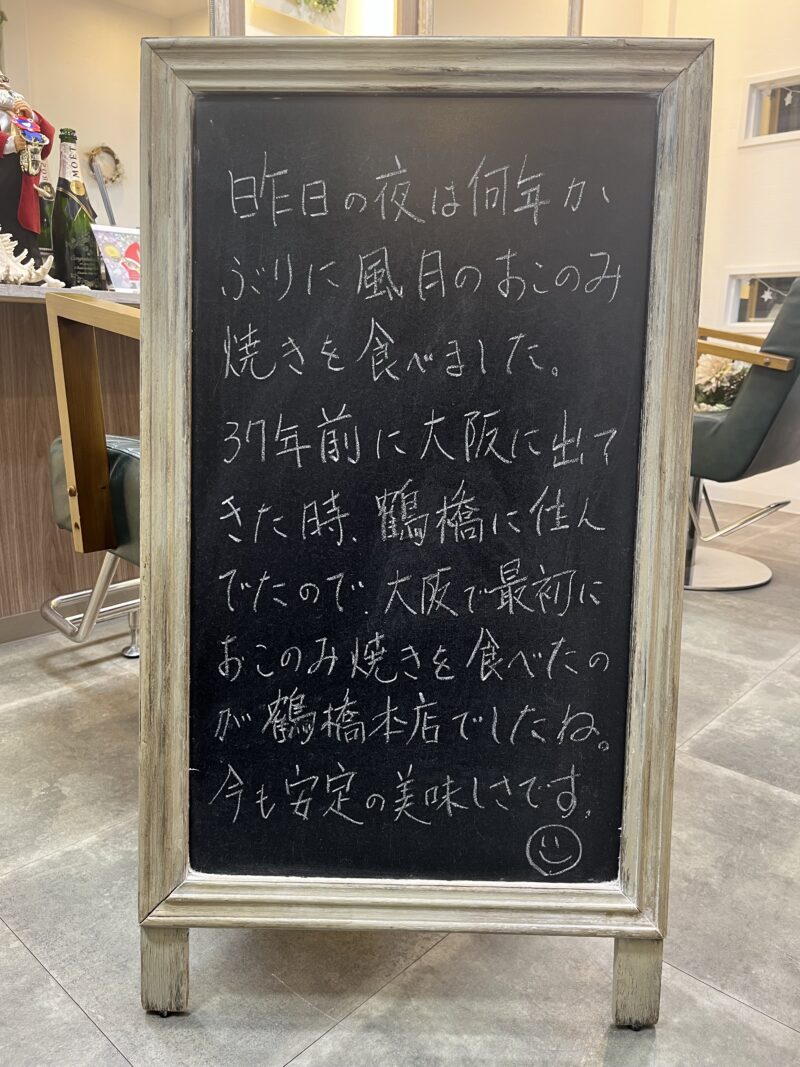 昨日の夜は何年か
ぶりに風月のおこのみ
焼きを食べました。
37年前に大阪に出て
きた時、鶴橋に住ん
でたので、大阪で最初に
おこのみ焼きを食べたの
が鶴橋本店でしたね。
今も安定の美味しさです。
MOËT